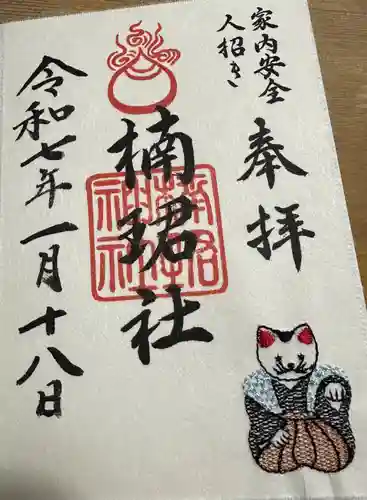 家内安全
人招き
奉拝
楠珺社
楠珺社
神社
令和七年一月十八日